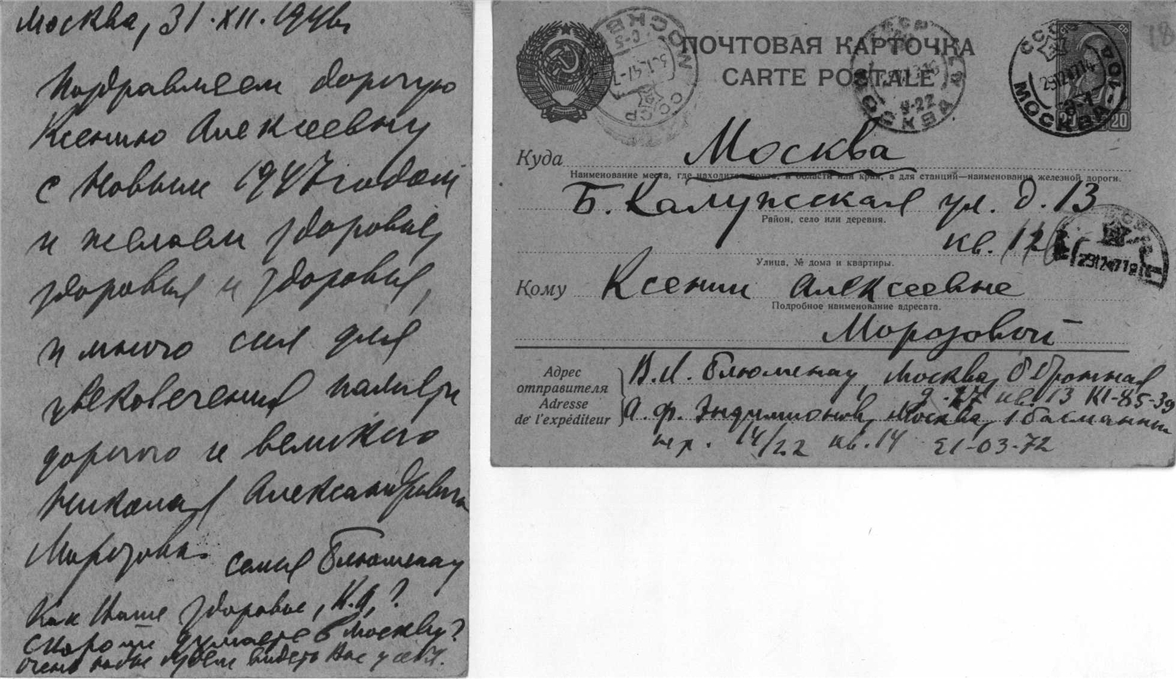 Москва, 31.XII.1946г.
Поздравляем дорогую
Ксению Алексеевну
с Новым 1947 годом
и желаем здоровья,
здоровья и здоровья,
и много сил для
увековечения памяти
дорогого и великого
Николая Александровича
Морозова. семья Блюменау
Как Ваше здоровье, К.А.?
Скоро ли думаете в Москву?
очень рады будем видеть Вас у себя.
ПОЧТОВАЯ КАРТОЧКА
CARTE POSTALE
СССР
МОСКВА
20
Куда Москва
Наименование места, где находится почта, и области или края, а для станций—наименование железной дороги.
Б. Калужская ул. д. 13
Район, село или деревня.
кв.
Улица, № дома и квартиры.
Кому Ксении Алексеевне
Подробное наименование адресата.
Морозовой
Адрес отправителя
Adresse de l'expéditeur
В.Л. Блюменау, Москва,
д. 27 кв. 13 К1-85-39
А.Ф. Москва, 1 Басманный
пер. 14/22 кв. 14 Е1-03-72